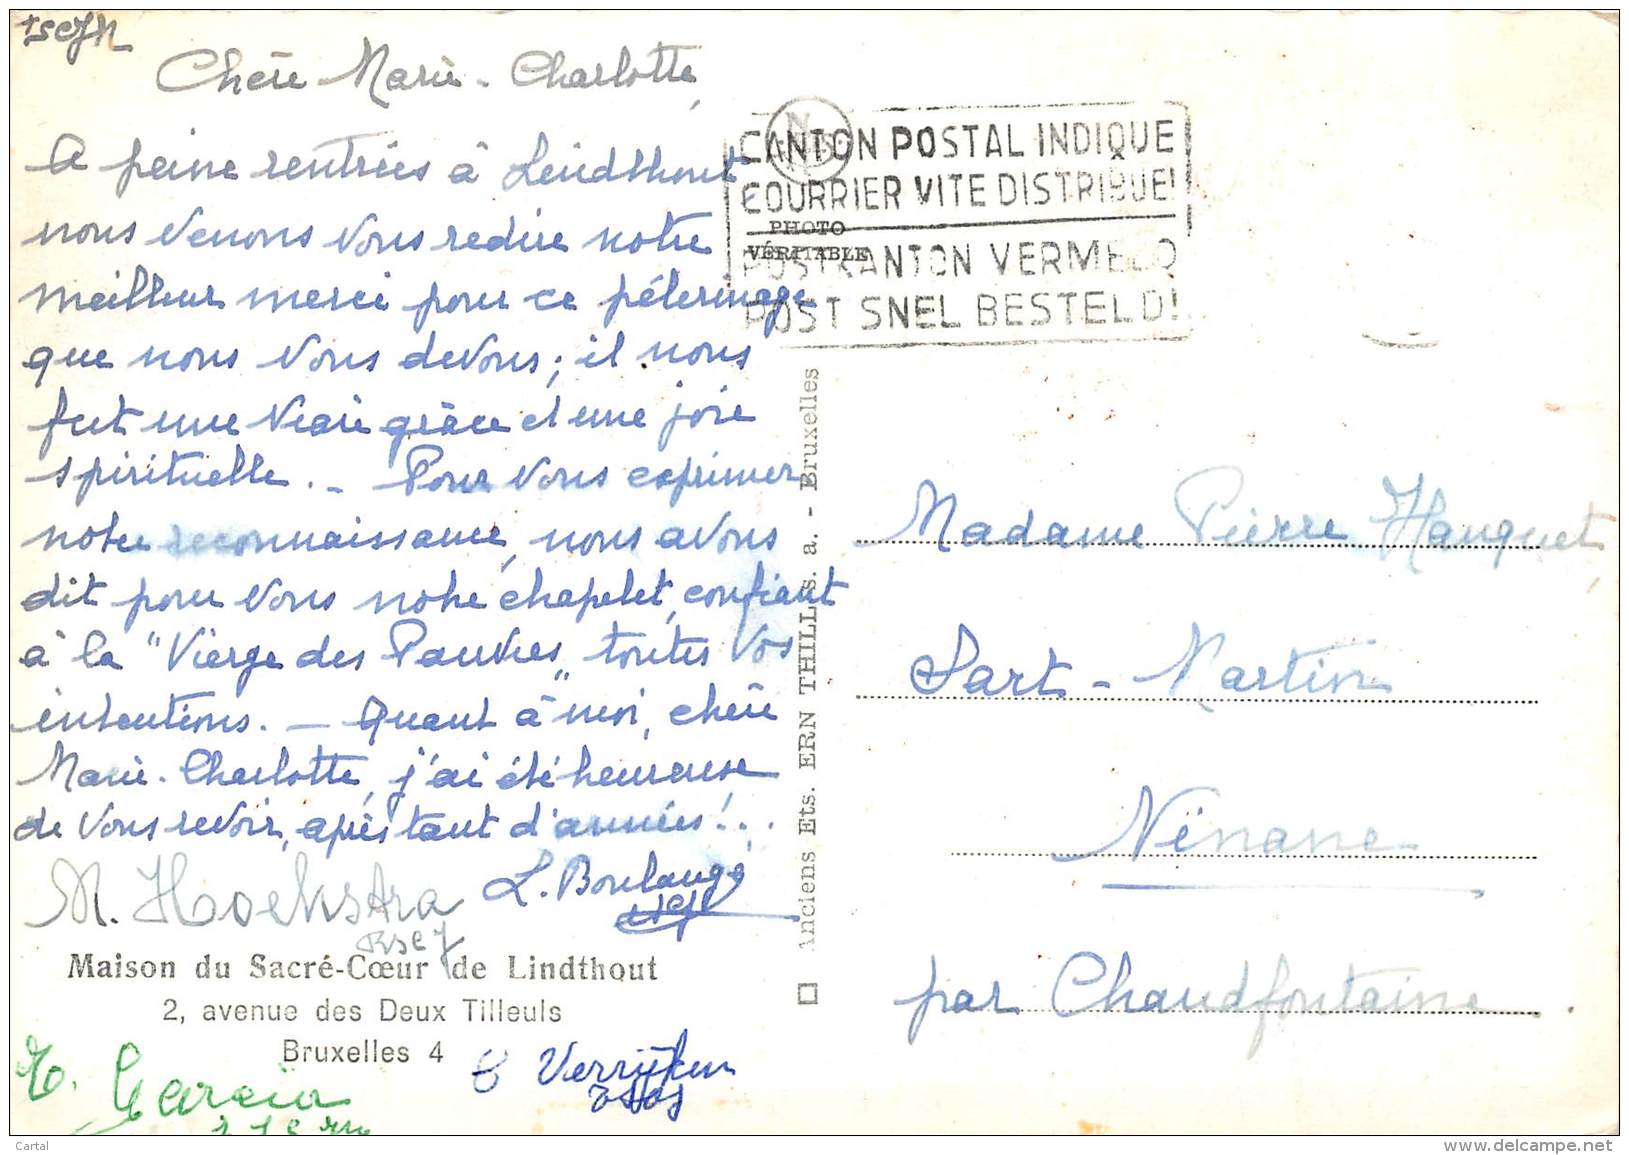 Chère Marie-Charlotte,
A peine rentrées à Lindthout
nous venons vous redire notre
meilleur merci pour ce pélerinage
que nous vous devons; il nous
fut une vraie grâce et une joie
spirituelle. - Pour vous exprimer
notre reconnaissance, nous avons
dit pour vous notre chapelet, confiant
à la "Vierge des Pauvres", toutes vos
intentions. - Quant à moi, chère
Marie-Charlotte, j'ai été heureuse
de vous revoir, après tant d'années!..
L. Boulangé
M. Hoekstra
rscj
Maison du Sacré-Cœur de Lindthout
2, avenue des Deux Tilleuls
Bruxelles 4
Garcia
Verrijken
CANTON POSTAL INDIQUE
COURRIER VITE DISTRIBUE!
POSTKANTON VERMELD
POST SNEL BESTELD!
PHOTO
VÉRITABLE
Anciens Ets. ERN THILL, s. a. - Bruxelles
Madame Pierre Hanquet,
Sart-Martin
Ninane
par Chaudfontaine.
Cartal
www.delcampe.net